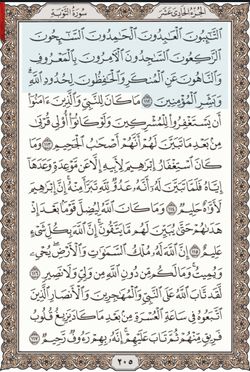 الجزء الحادي عشر
سورة التوبة
التَّٰٓئِبُونَ الْعَٰبِدُونَ الْحَٰمِدُونَ السَّٰٓئِحُونَ
الرَّٰكِعُونَ السَّٰجِدُونَ الْءَامِرُونَ بِالْمَعْرُوفِ
وَالنَّاهُونَ عَنِ الْمُنكَرِ وَالْحَٰفِظُونَ لِحُدُودِ اللَّهِ
وَبَشِّرِ الْمُؤْمِنِينَ ١١٢ مَا كَانَ لِلنَّبِيِّ وَالَّذِينَ ءَامَنُوٓا
أَن يَسْتَغْفِرُوا لِلْمُشْرِكِينَ وَلَوْ كَانُوٓا أُولِي قُرْبَىٰ
مِنۢ بَعْدِ مَا تَبَيَّنَ لَهُمْ أَنَّهُمْ أَصْحَٰبُ الْجَحِيمِ ١١٣ وَمَا
كَانَ اسْتِغْفَارُ إِبْرَٰهِيمَ لِأَبِيهِ إِلَّا عَن مَّوْعِدَةٍ وَعَدَهَآ
إِيَّاهُ فَلَمَّا تَبَيَّنَ لَهُۥٓ أَنَّهُۥ عَدُوٌّ لِّلَّهِ تَبَرَّأَ مِنْهُ إِنَّ إِبْرَٰهِيمَ
لَأَوَّٰهٌ حَلِيمٌ ١١٤ وَمَا كَانَ اللَّهُ لِيُضِلَّ قَوْمًۢا بَعْدَ إِذْ
هَدَىٰهُمْ حَتَّىٰ يُبَيِّنَ لَهُم مَّا يَتَّقُونَ إِنَّ اللَّهَ بِكُلِّ شَيْءٍ
عَلِيمٌ ١١٥ إِنَّ اللَّهَ لَهُۥ مُلْكُ السَّمَٰوَٰتِ وَالْأَرْضِ يُحْيِۦ
وَيُمِيتُ وَمَا لَكُم مِّن دُونِ اللَّهِ مِن وَلِيٍّ وَلَا نَصِيرٍ ١١٦
لَّقَد تَّابَ اللَّهُ عَلَى النَّبِيِّ وَالْمُهَٰجِرِينَ وَالْأَنصَارِ الَّذِينَ
اتَّبَعُوهُ فِي سَاعَةِ الْعُسْرَةِ مِنۢ بَعْدِ مَا كَادَ يَزِيغُ قُلُوبُ
فَرِيقٍ مِّنْهُمْ ثُمَّ تَابَ عَلَيْهِمْ إِنَّهُۥ بِهِمْ رَءُوفٌ رَّحِيمٌ ١١٧
٢٠٥